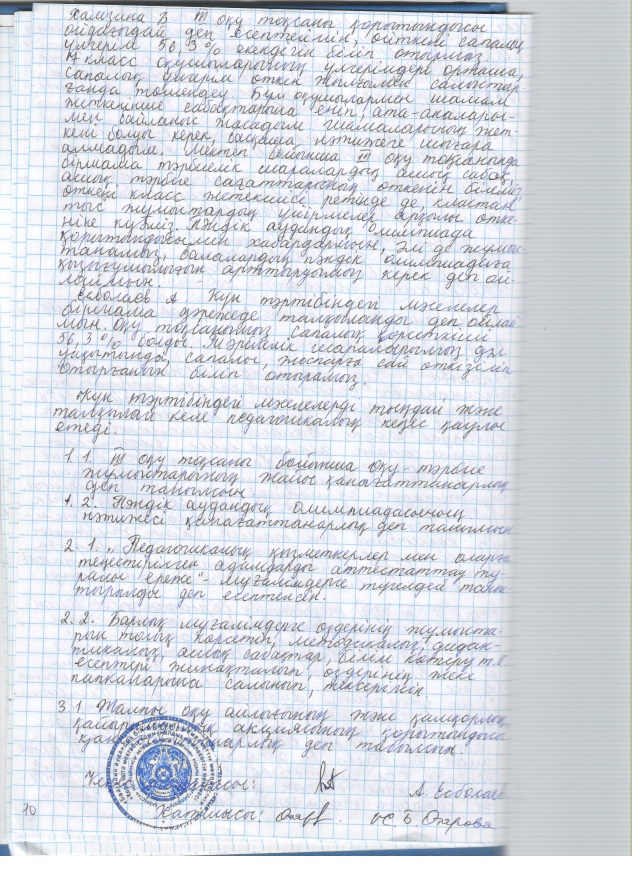 Хамзина Б III оқу тоқсаны қорытындысы
ойдағыдай деп есептеймін, өйткені сапалық
үлгерім 56,3% екендегін біліп отырмыз
класс оқушыларының үлгерімдері орташа,
сапалық үлгерім өткен жылғымен салыстыр-
ғанда төмендеу. Бұл оқушылармен шамам
жеткенше сабақтарына еніп, ата-аналары-
мен байланыс жасадым шамаларының жет-
кені болуы керек, басқаша нәтижеге шығара
алмадым. Мектеп бойынша III оқу тоқсанында
бірнама тәрбиелік шаралардың ашық сабақ,
ашық тәрбие сағаттарының өткенін білеміз
өткені класс жетекшісі ретінде де, кластан
тыс жұмыстардың үйірмелер арқылы өтке-
ніне куәміз. Пәндік аудандық олимпиада
қорытындысымен хабардармын, әлі де жұмыс-
танамыз, балалардың пәндік олимпиадаға
қызығушылығын арттыруымыз керек деп ой-
лаймын.
Есболаев А. Күн тәртібіндегі мәселелер
бірнама дәрежеде талқыланды деп ойлай-
мын. Оқу тоқсанымыз сапалық көрсеткіші
56,3% болды. Тәрбиелік шараларымыз дәл
уақытында, сапалы, жоспарға сай өткізіліп
отырғанын біліп отырамыз.
Күн тәртібіндегі мәселелерді тыңдай және
талқылай келе педагогикалық кеңес қаулы
етеді.
1. 1. III оқу тоқсаны бойынша оқу-тәрбие
жұмыстарының жайы қанағаттанарлық
деп танылсын
1. 2. Пәндік аудандық олимпиадасының
нәтижесі қанағаттанарлық деп танылсын
2. 1. „Педагогикалық қызметкерлер мен оларға
теңестірілген адамдарды аттестаттау ту-
ралы ереже"- мұғалімдерге түгелдей таныс-
тырылды деп есептелсін.
2. 2. Барлық мұғалімдерге өздерінің жұмыста-
рын толық көрсетіп, методикалық, дидак-
тикалық, ашық сабақтар, білім көтеру т.б
есептері жинақталып, өздерінің жеке
папкаларына салынып, тексерілсін
3. 1 Жалпы оқу айлығының және қамқорлық,
акциясының қорытындысы
деп табылсын.
А Есболаев
Хатшысы: С. Б Отарова
10